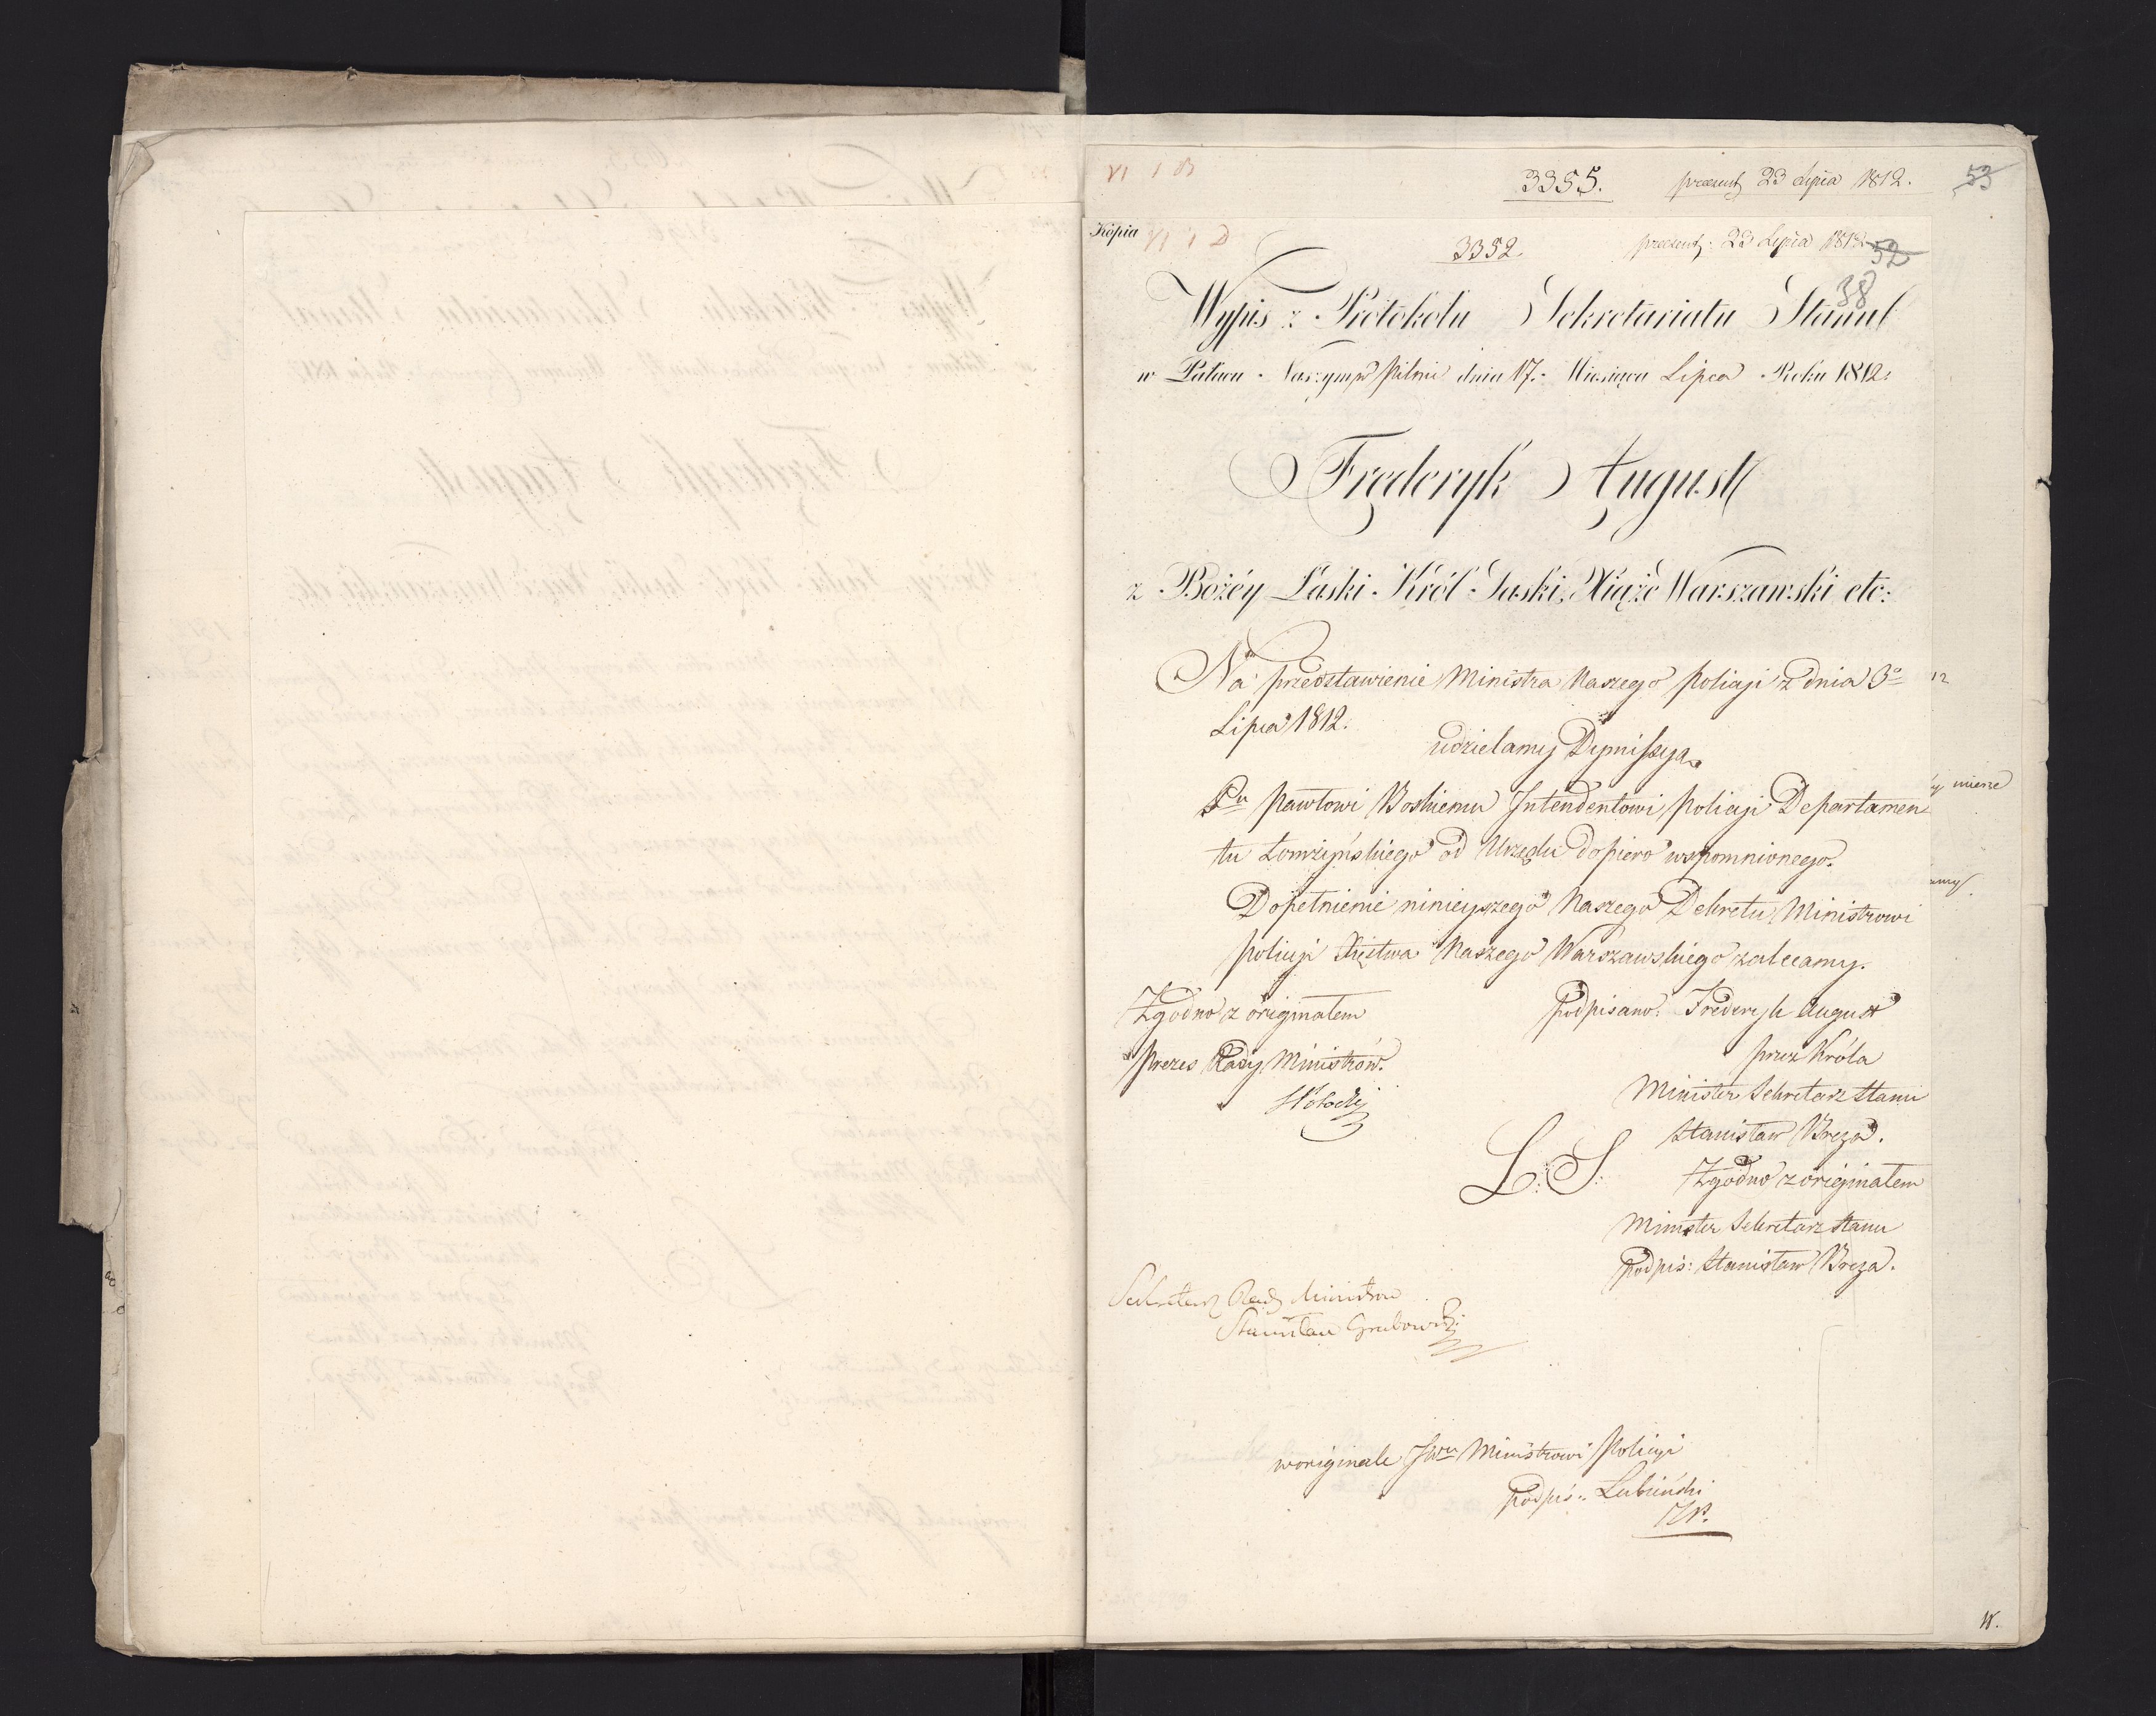 VI 1 B
3355.
praesent 23 Lipca 1812.
53
Kopia
VI 1 D
3352.
praesent: 23 Lipca 1812
52
38
Wypis z Protokołu Sekretariatu Stanu
w Pałacu Naszym w Pilnic dnia 17. Miesiąca Lipca Roku 1812.
Fryderyk August
z Bożéy Łaski Król Saski, Xiąże Warszawski etc:
Na przedstawienie Ministra Naszego Policyi z dnia 3o
Lipca 1812.
udzielamy Dymissyą
Pu Pawłowi Boskiemu Intendentowi Policyi Departamen
tu Łomżyńskiego od Urzędu dopiero wspomnionego.
Dopełnienie ninieyszego Naszego Dekretu Ministrowi
Policyi Xięstwa Naszego Warszawskiego zalecamy.
Zgodno z originałem
Prezes Rady Ministrów.
Podpisano: Frederyk August
przez Króla
Minister Sekretarz Stanu
Stanisław Breza.
L: S:
Zgodno z originałem
Minister Sekretarz Stanu
Podpis: Stanisław Breza.
Sekretarz Rady Ministrów
Stanisław Grabowski
w originale JWu Ministrowi Policyi
podpis: Łubieński
12
mierze
amy
W.